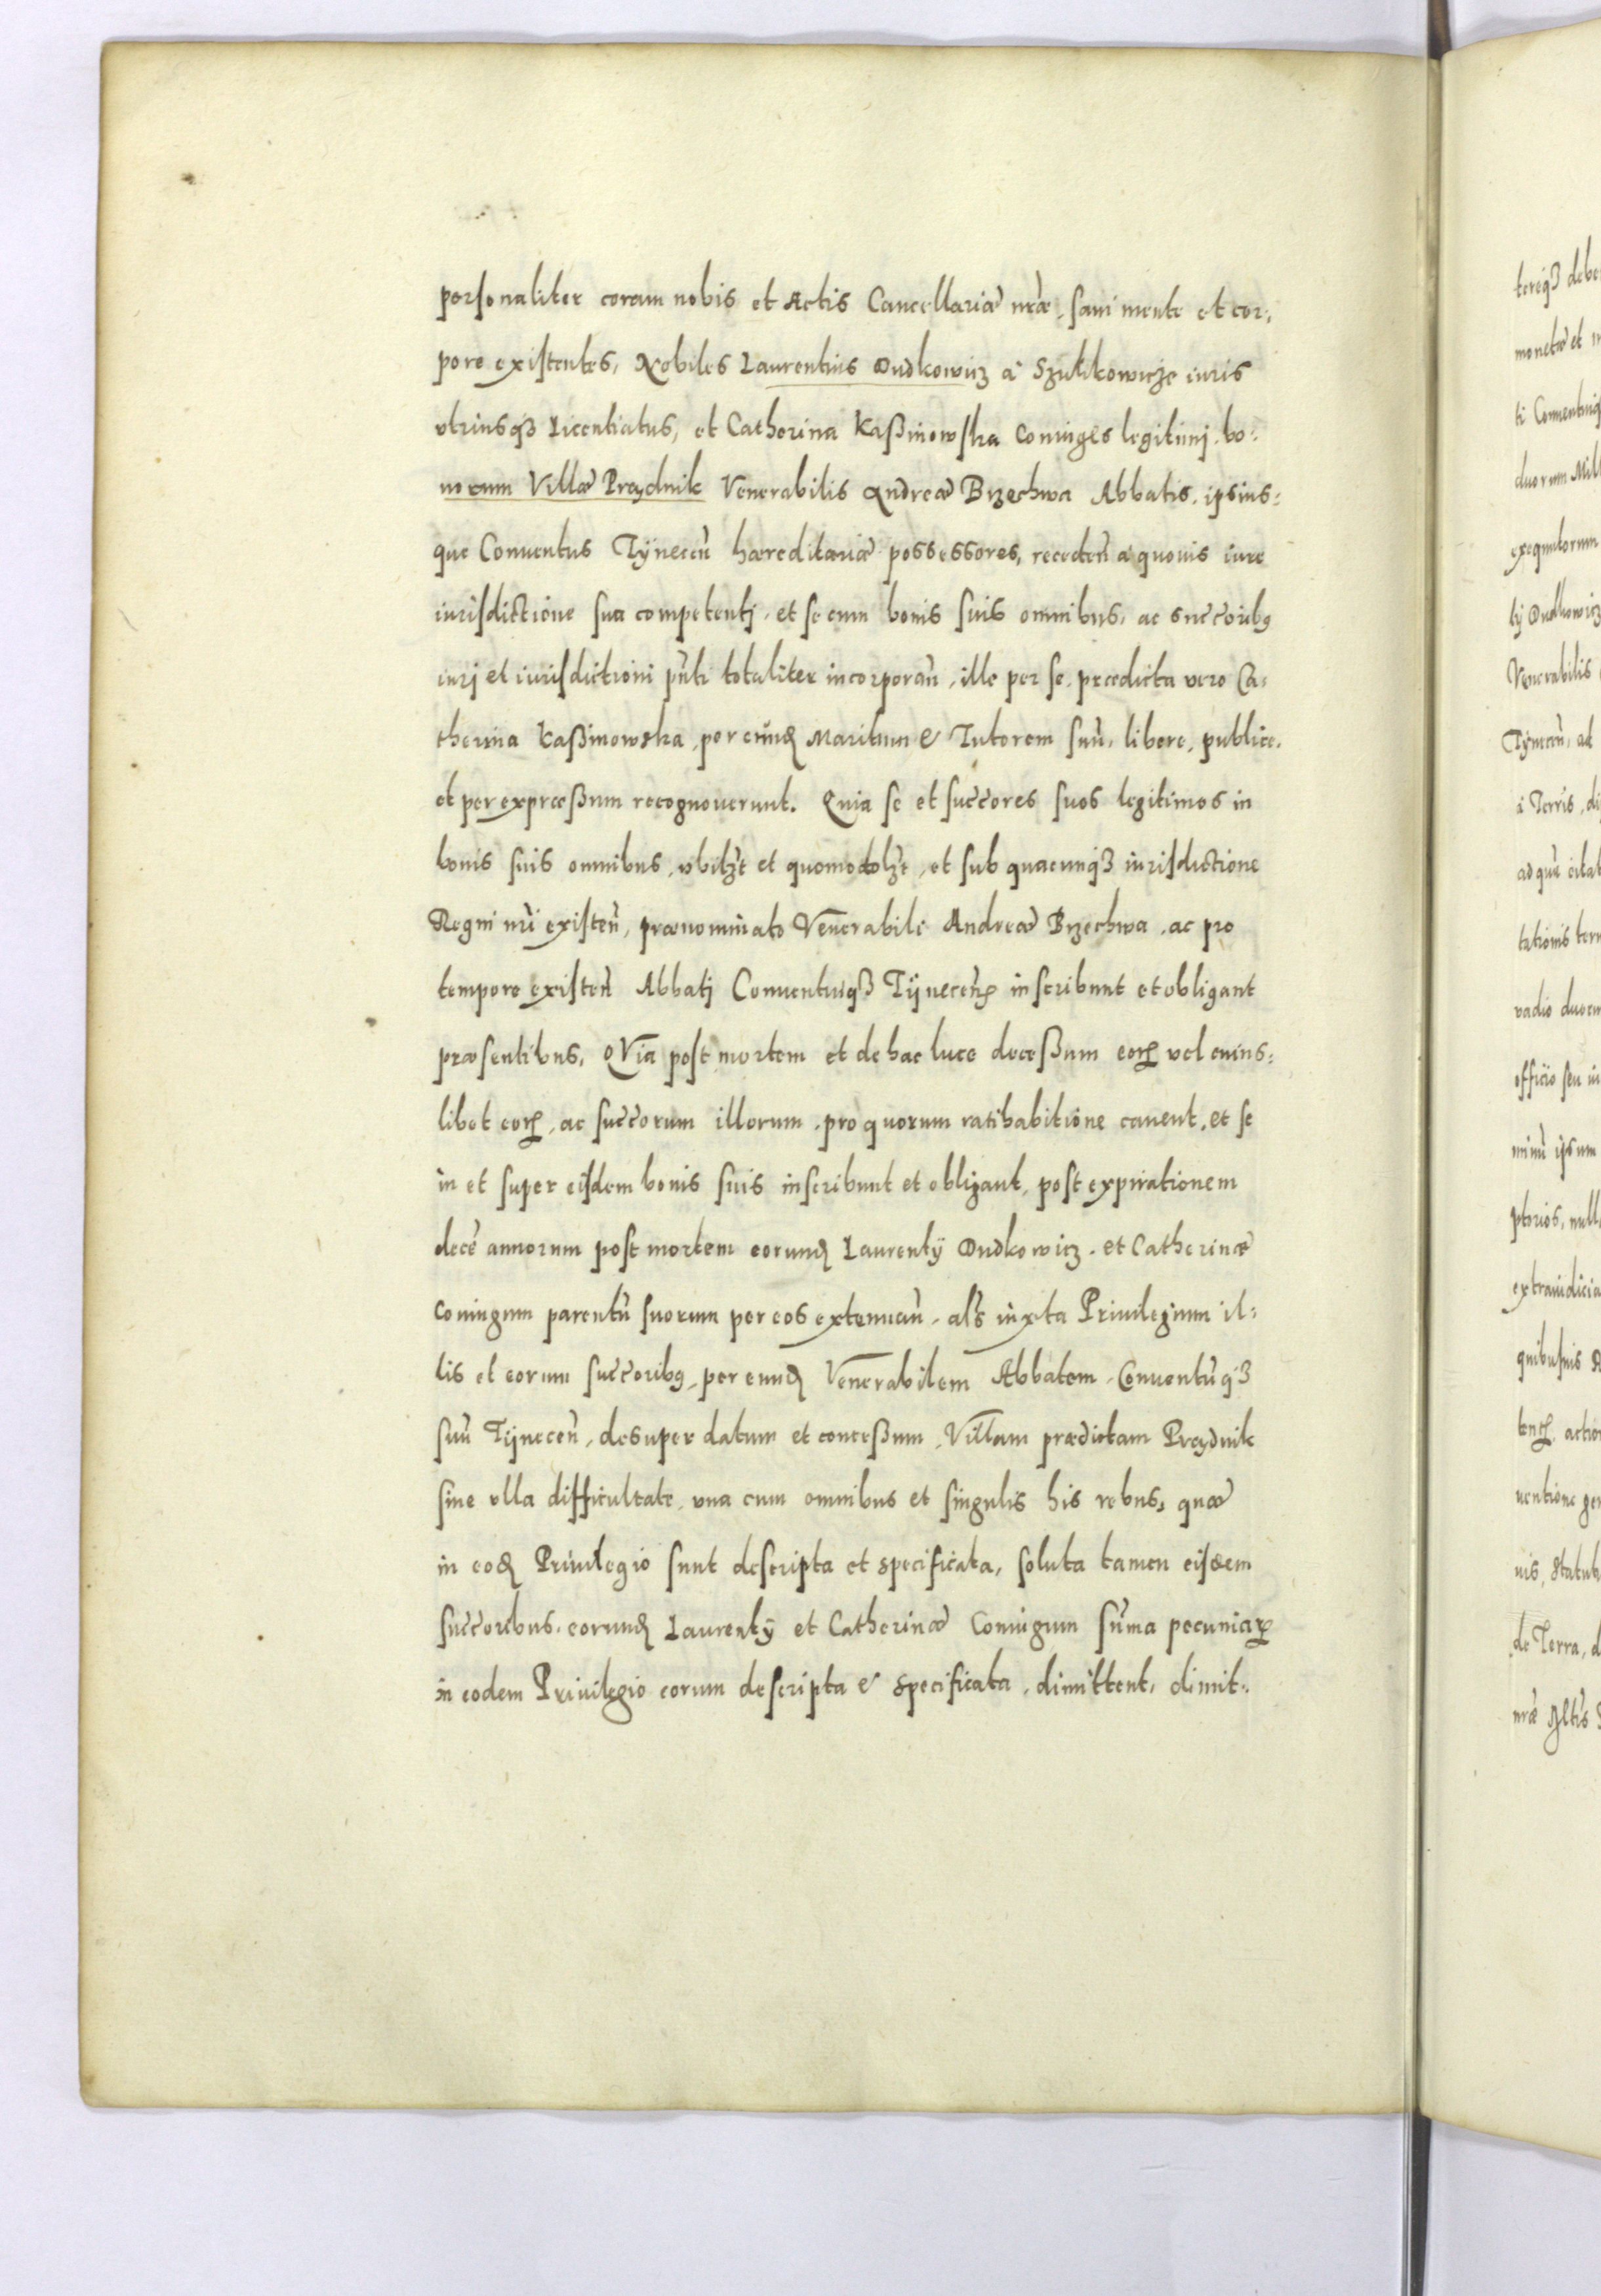 personaliter coram nobis et Actis Cancellariæ nræ, sani mente et cor-
pore existentes, Nobiles Laurentius Dudkowicz à Szulikowicze iuris
vtriusq3 Licentiatus, et Catherina Kaßinowska Coniuges legitimj, bo-
norum Villæ Prądnik Venerabilis Andreæ Brzechwa Abbatis, ipsius-
que Conuentus Tÿnecen̄ hæreditariæ possessores, receden̄ à quouis iure
iurisdictione sua competentj, et se cum bonis suis omnibus, ac succ̄oribꝯ
iurj et iurisdictioni pn̄ti totaliter incorporan̄, ille per se, prædicta vero Ca-
therina Kaßinowska, per eund̄ Maritum & Tutorem suū, libere, publice,
et per expræßum recognouerunt. Quia se et succ̄ores suos legitimos in
bonis suis omnibus, vbilȝt et quomodolȝt, et sub quacunq3 iurisdictione
Regni nr̄i existen̄, prænominato Ven̄erabili Andreæ Brzechwa, ac pro
tempore existen̄ Abbatj Conuentuiq3 Tÿnecen̄ inscribunt et obligant
præsentibus, QVia post mortem et de hac luce deceßum eorꝝ vel cuius-
libet eorꝝ, ac succ̄orum illorum, pro quorum ratihabitione cauent, et se
in et super eisdem bonis suis inscribunt et obligant, post expirationem
decē annorum post mortem eorund̄ Laurentÿ Dudkowicz, et Catherinæ
Coniugum parentū suorum per eos extenuan̄, als̄ iuxta Priuilegium il-
lis et eorum succ̄oribꝯ, per eund̄ Ven̄erabilem Abbatem, Conuentūq3
suū Tÿnecen̄, desuper datum et conceßum, Villam prædictam Prądnik
sine vlla difficultate, vna cum omnibus et singulis his rebus, quæ
in eod̄ Priuilegio sunt descripta et specificata, soluta tamen eisdem
succ̄oribus, eorund̄ Laurentÿ et Catherinæ Coniugum sum̄a pecuniarꝝ
in eodem Priuilegio eorum descripta & specificata, dimittent, dimit-